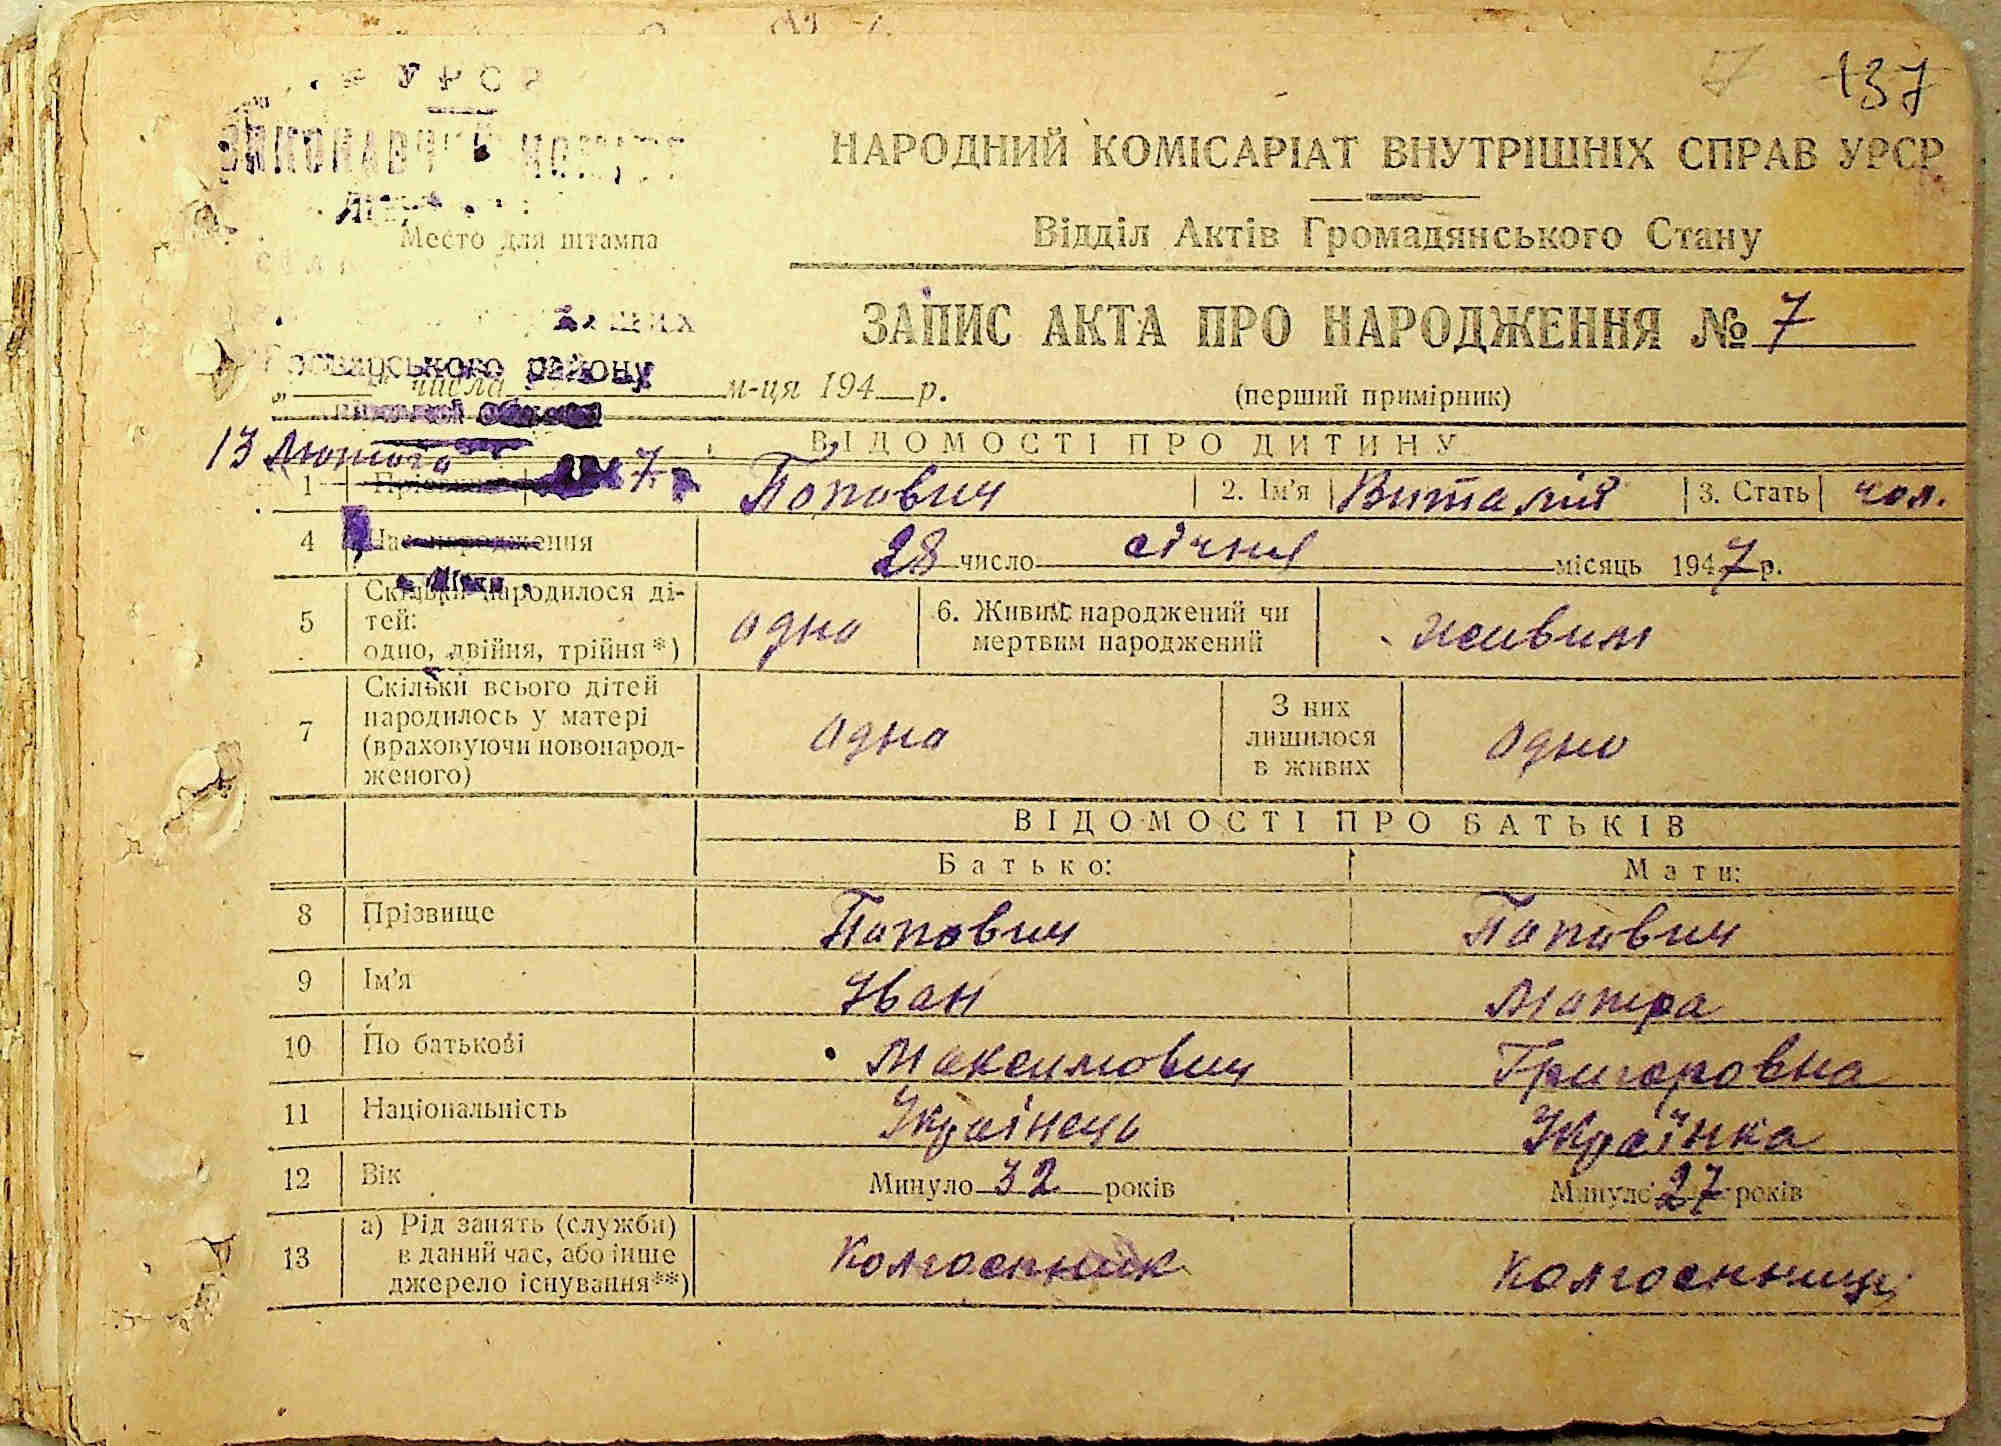 137
НАРОДНИЙ КОМІСАРІАТ ВНУТРІШНІХ СПРАВ УРСР
Відділ Актів Громадянського Стану
ВИКОНАВЧИЙ КОМІТЕТ
Место для штампа
ЗАПИС АКТА ПРО НАРОДЖЕННЯ № 7
району
„ числа м-ця 194 р.
(перший примірник)
13 Лютого 7
ВІДОМОСТІ ПРО ДИТИНУ
1 Попович 2. Ім'я Виталій 3. Стать чол.
4 Час народження 28 число січня місяць 1947 р.
5 Скільки народилося ді-
тей:
одно, двійня, трійня *)
одно
6. Живим народжений чи
мертвим народжений
живим
7 Скільки всього дітей
народилось у матері
(враховуючи новонарод-
женого)
одно
З них
лишилося
в живих
одно
ВІДОМОСТІ ПРО БАТЬКІВ
Батько: Мати:
8 Прізвище Попович Попович
9 Ім'я Іван
10 По батькові Максимович Григоровна
11 Національність Українець Українка
12 Вік Минуло 32 років Минуло 27 років
13 а) Рід занять (служби)
в даний час, або інше
джерело існування**)
Колгоспник Колгоспниця